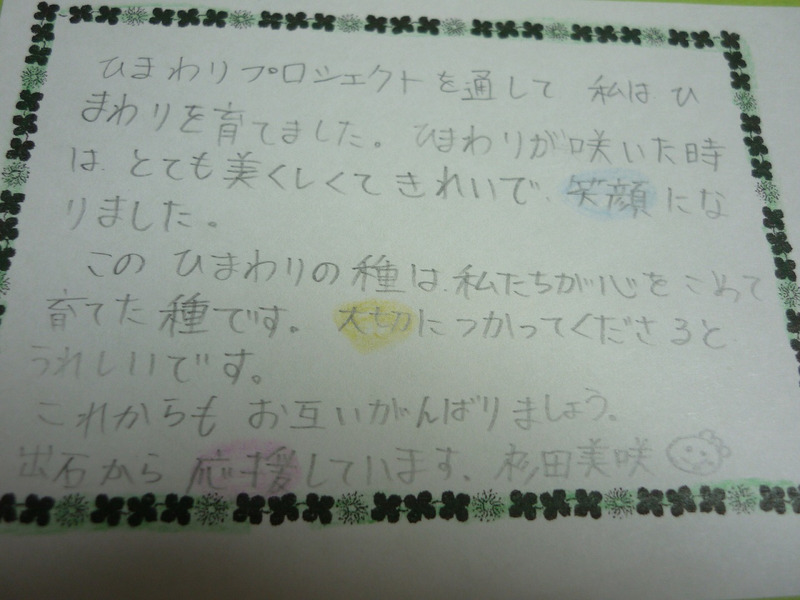 ひまわりプロジェクトを通して 私は ひ
まわりを育てました。ひまわりが咲いた時
は、とても美くしくてきれいで、笑顔にな
りました。
この ひまわりの種は、私たちが心をこめて
育てた種です。大切につかってくださると
うれしいです。
これからも お互いがんばりましょう。
出石から 応援しています、 杉田美咲